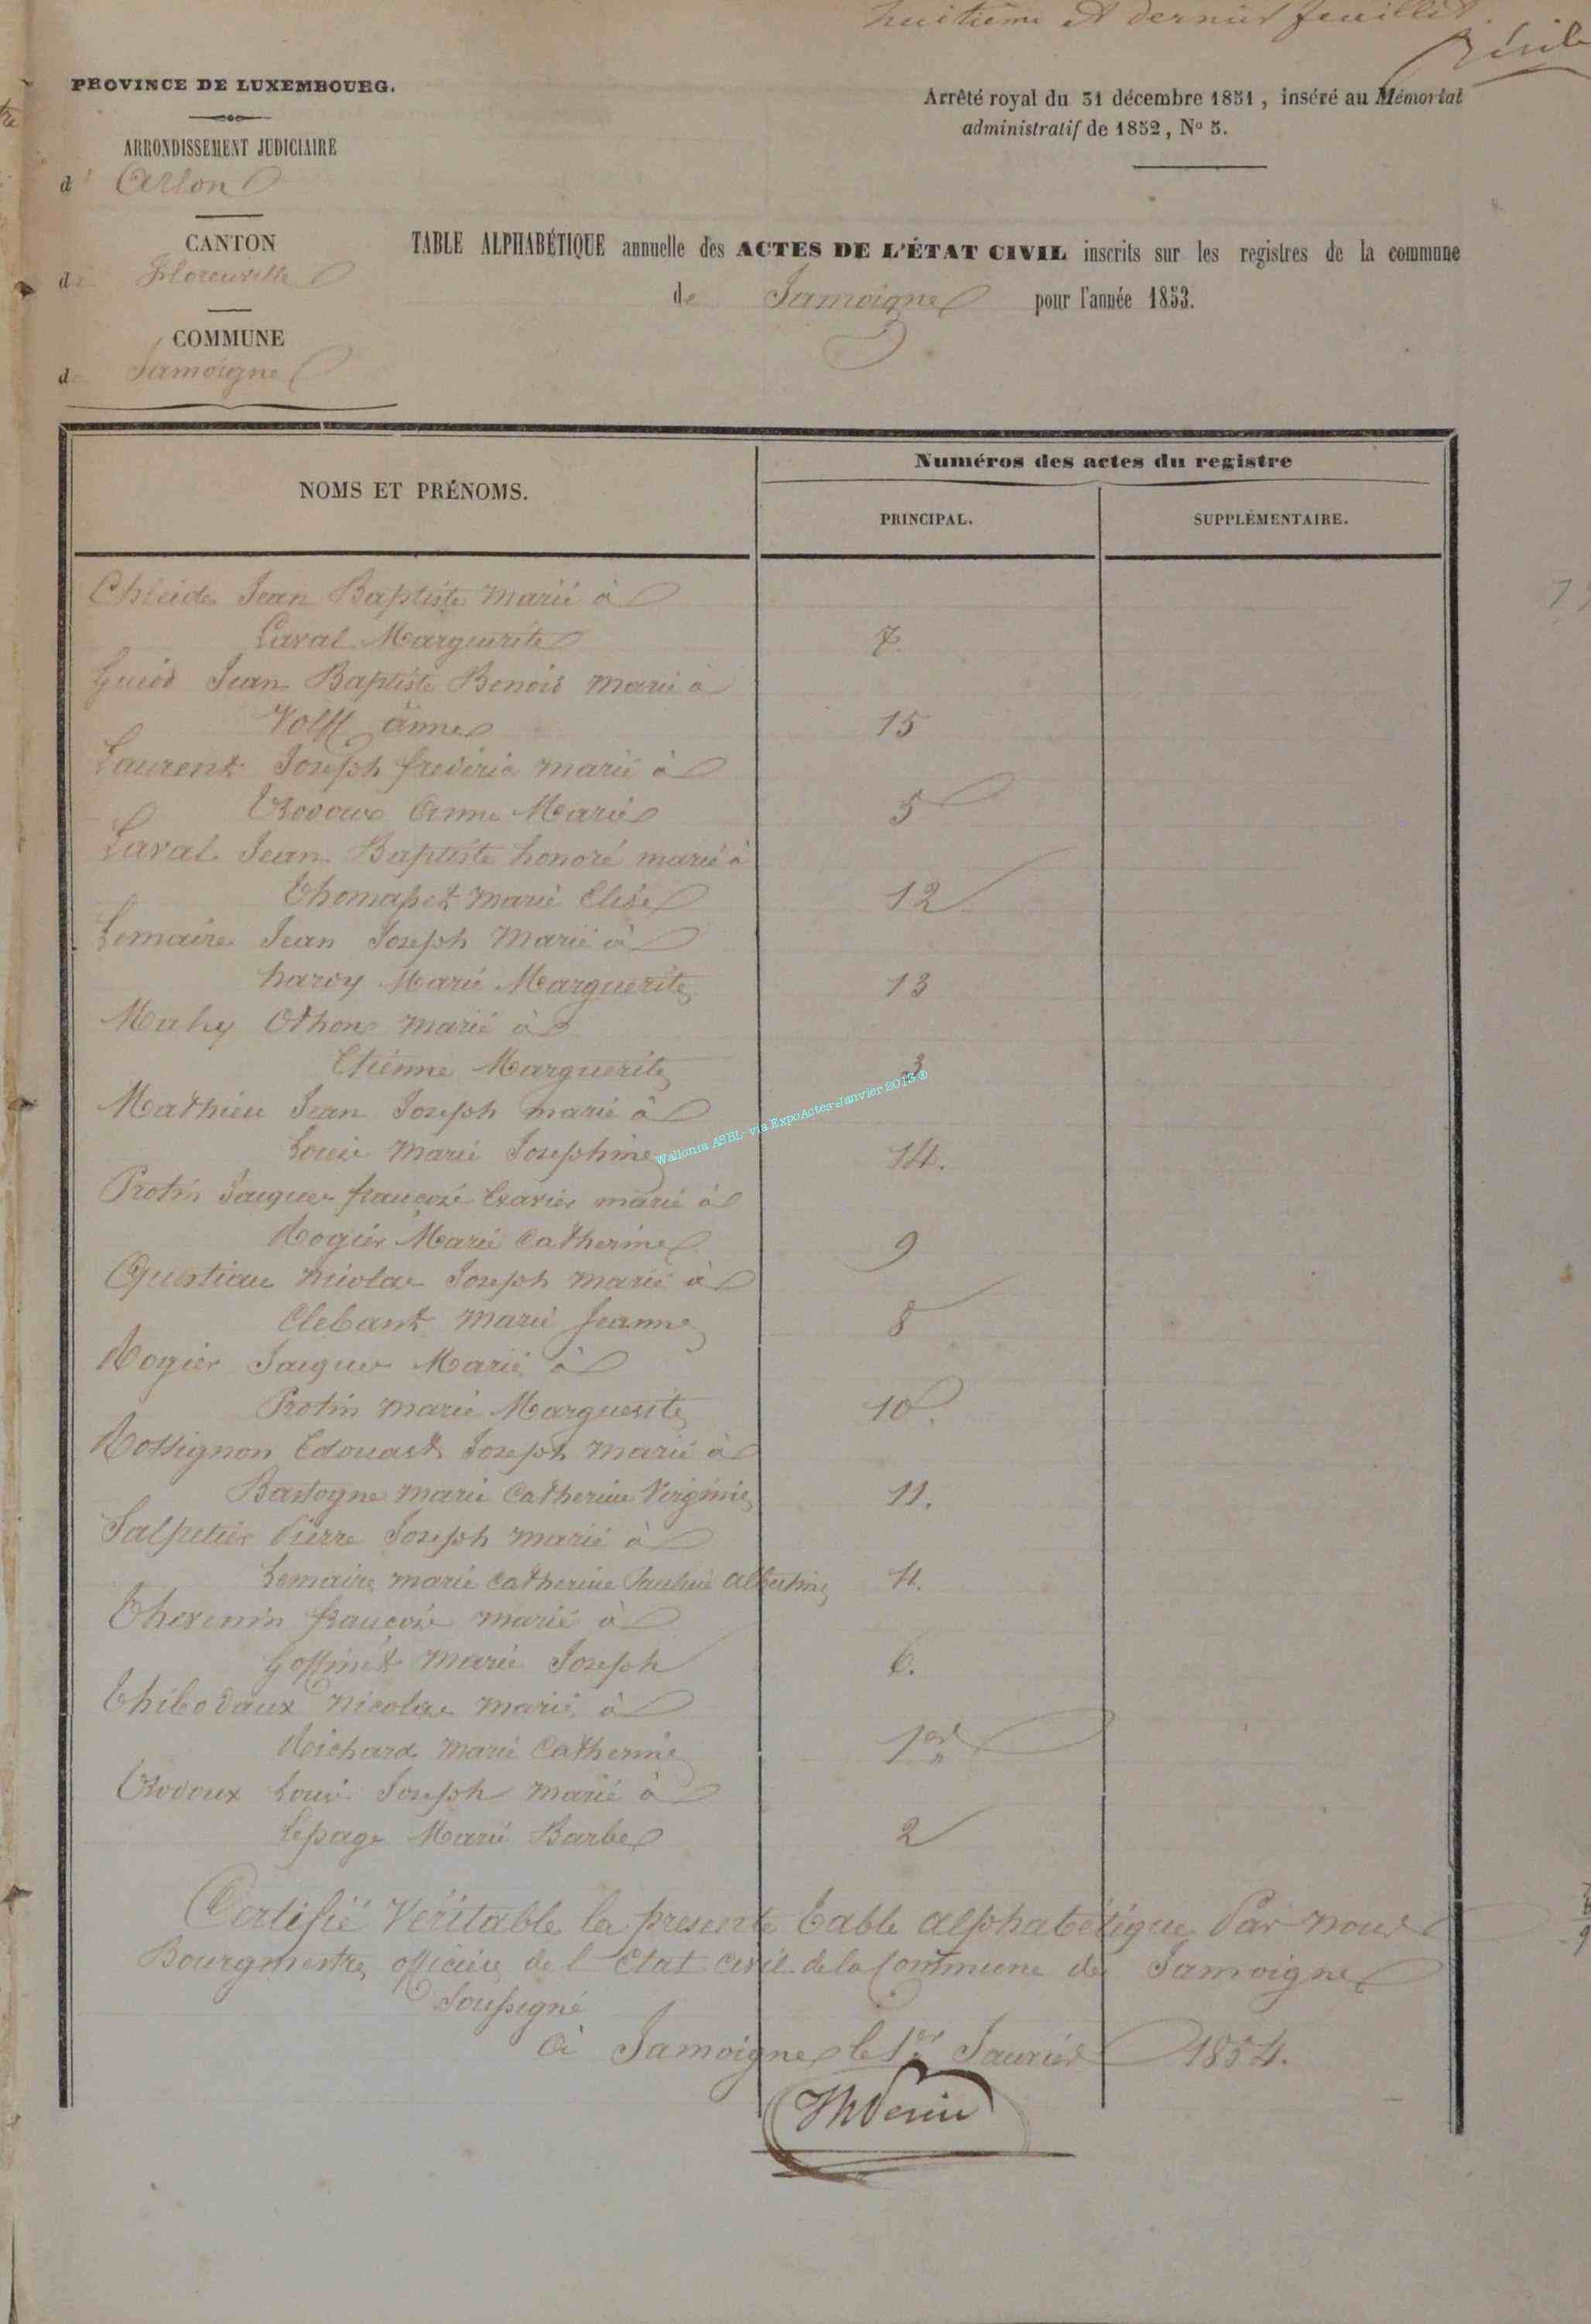 huitieme et dernier feuillet
PROVINCE DE LUXEMBOURG.
Arrêté royal du 31 décembre 1851, inséré au Mémorial
administratif de 1852, No 5.
ARRONDISSEMENT JUDICIAIRE
d' Arlon
CANTON
de Florenville
TABLE ALPHABÉTIQUE annuelle des ACTES DE L'ÉTAT CIVIL inscrits sur les registres de la commune
de Jamoigne pour l'année 1853.
COMMUNE
de Jamoigne
Numéros des actes du registre
NOMS ET PRÉNOMS.
PRINCIPAL.
SUPPLÉMENTAIRE.
Jean Baptiste marié à
Laval Marguerite 7.
Jean Baptiste Benoit marié à
Wolff anne 15
Laurent Joseph frederic marié à
Rodoux Anne Marie 5
Laval Jean Baptiste honoré marié à
Thomasset marie Elise 12
Lemaire Jean Joseph Marié à
hardy Marie Marguerite 13
Mahy Othon marié à
Etienne Marguerite 3
Mathieu Jean Joseph marié à
Louis Marie Josephine 14.
Protin Jacques françois Exavier marié à
Rogier Marie Catherine 9
Questiau nicolas Joseph marié à
Clebant marie Jeanne 8
Rogier Jacques Marié à
Protin marie Marguerite 10.
Rossignon Edouard Joseph marié à
Bastogne marie Catherine Virginie 11.
Salpetier Pierre Joseph marié à
Lemaire marie Catherine Pauline Albertine 4.
Thevenin françois marié à
Goffinet marie Joseph 6.
Thibodaux nicolas marié à
Richard marie Catherine 1er
Rodoux Louis Joseph marié à
Lepage Marie Barbe 2
Certifié Véritable la presente table alphabétique Par nous
Bourgmestre officier de l'Etat civil de la Commune de Jamoigne
Soussigné
à Jamoigne le 1er Janvier 1854.
Wallonia ASBL via ExpoActes-Janvier 2013 ®